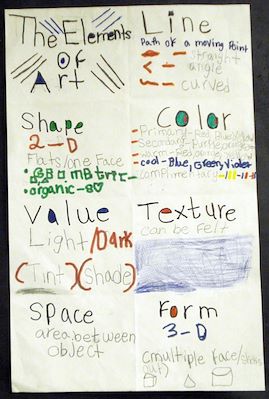 The Elements
Of
Art
Line
Path of a moving Point
straight
angle
curved
Shape
2-D
Flats/one Face
organic-
Color
Primary-Red Blue
Secondary-Purple orange
cool-Blue, Green, Violet
complimentary-
Value
Light/Dark
(Tint)(Shade)
Texture
can be felt
Space
area between
object
Form
3-D
(multiple face/sticks
out)